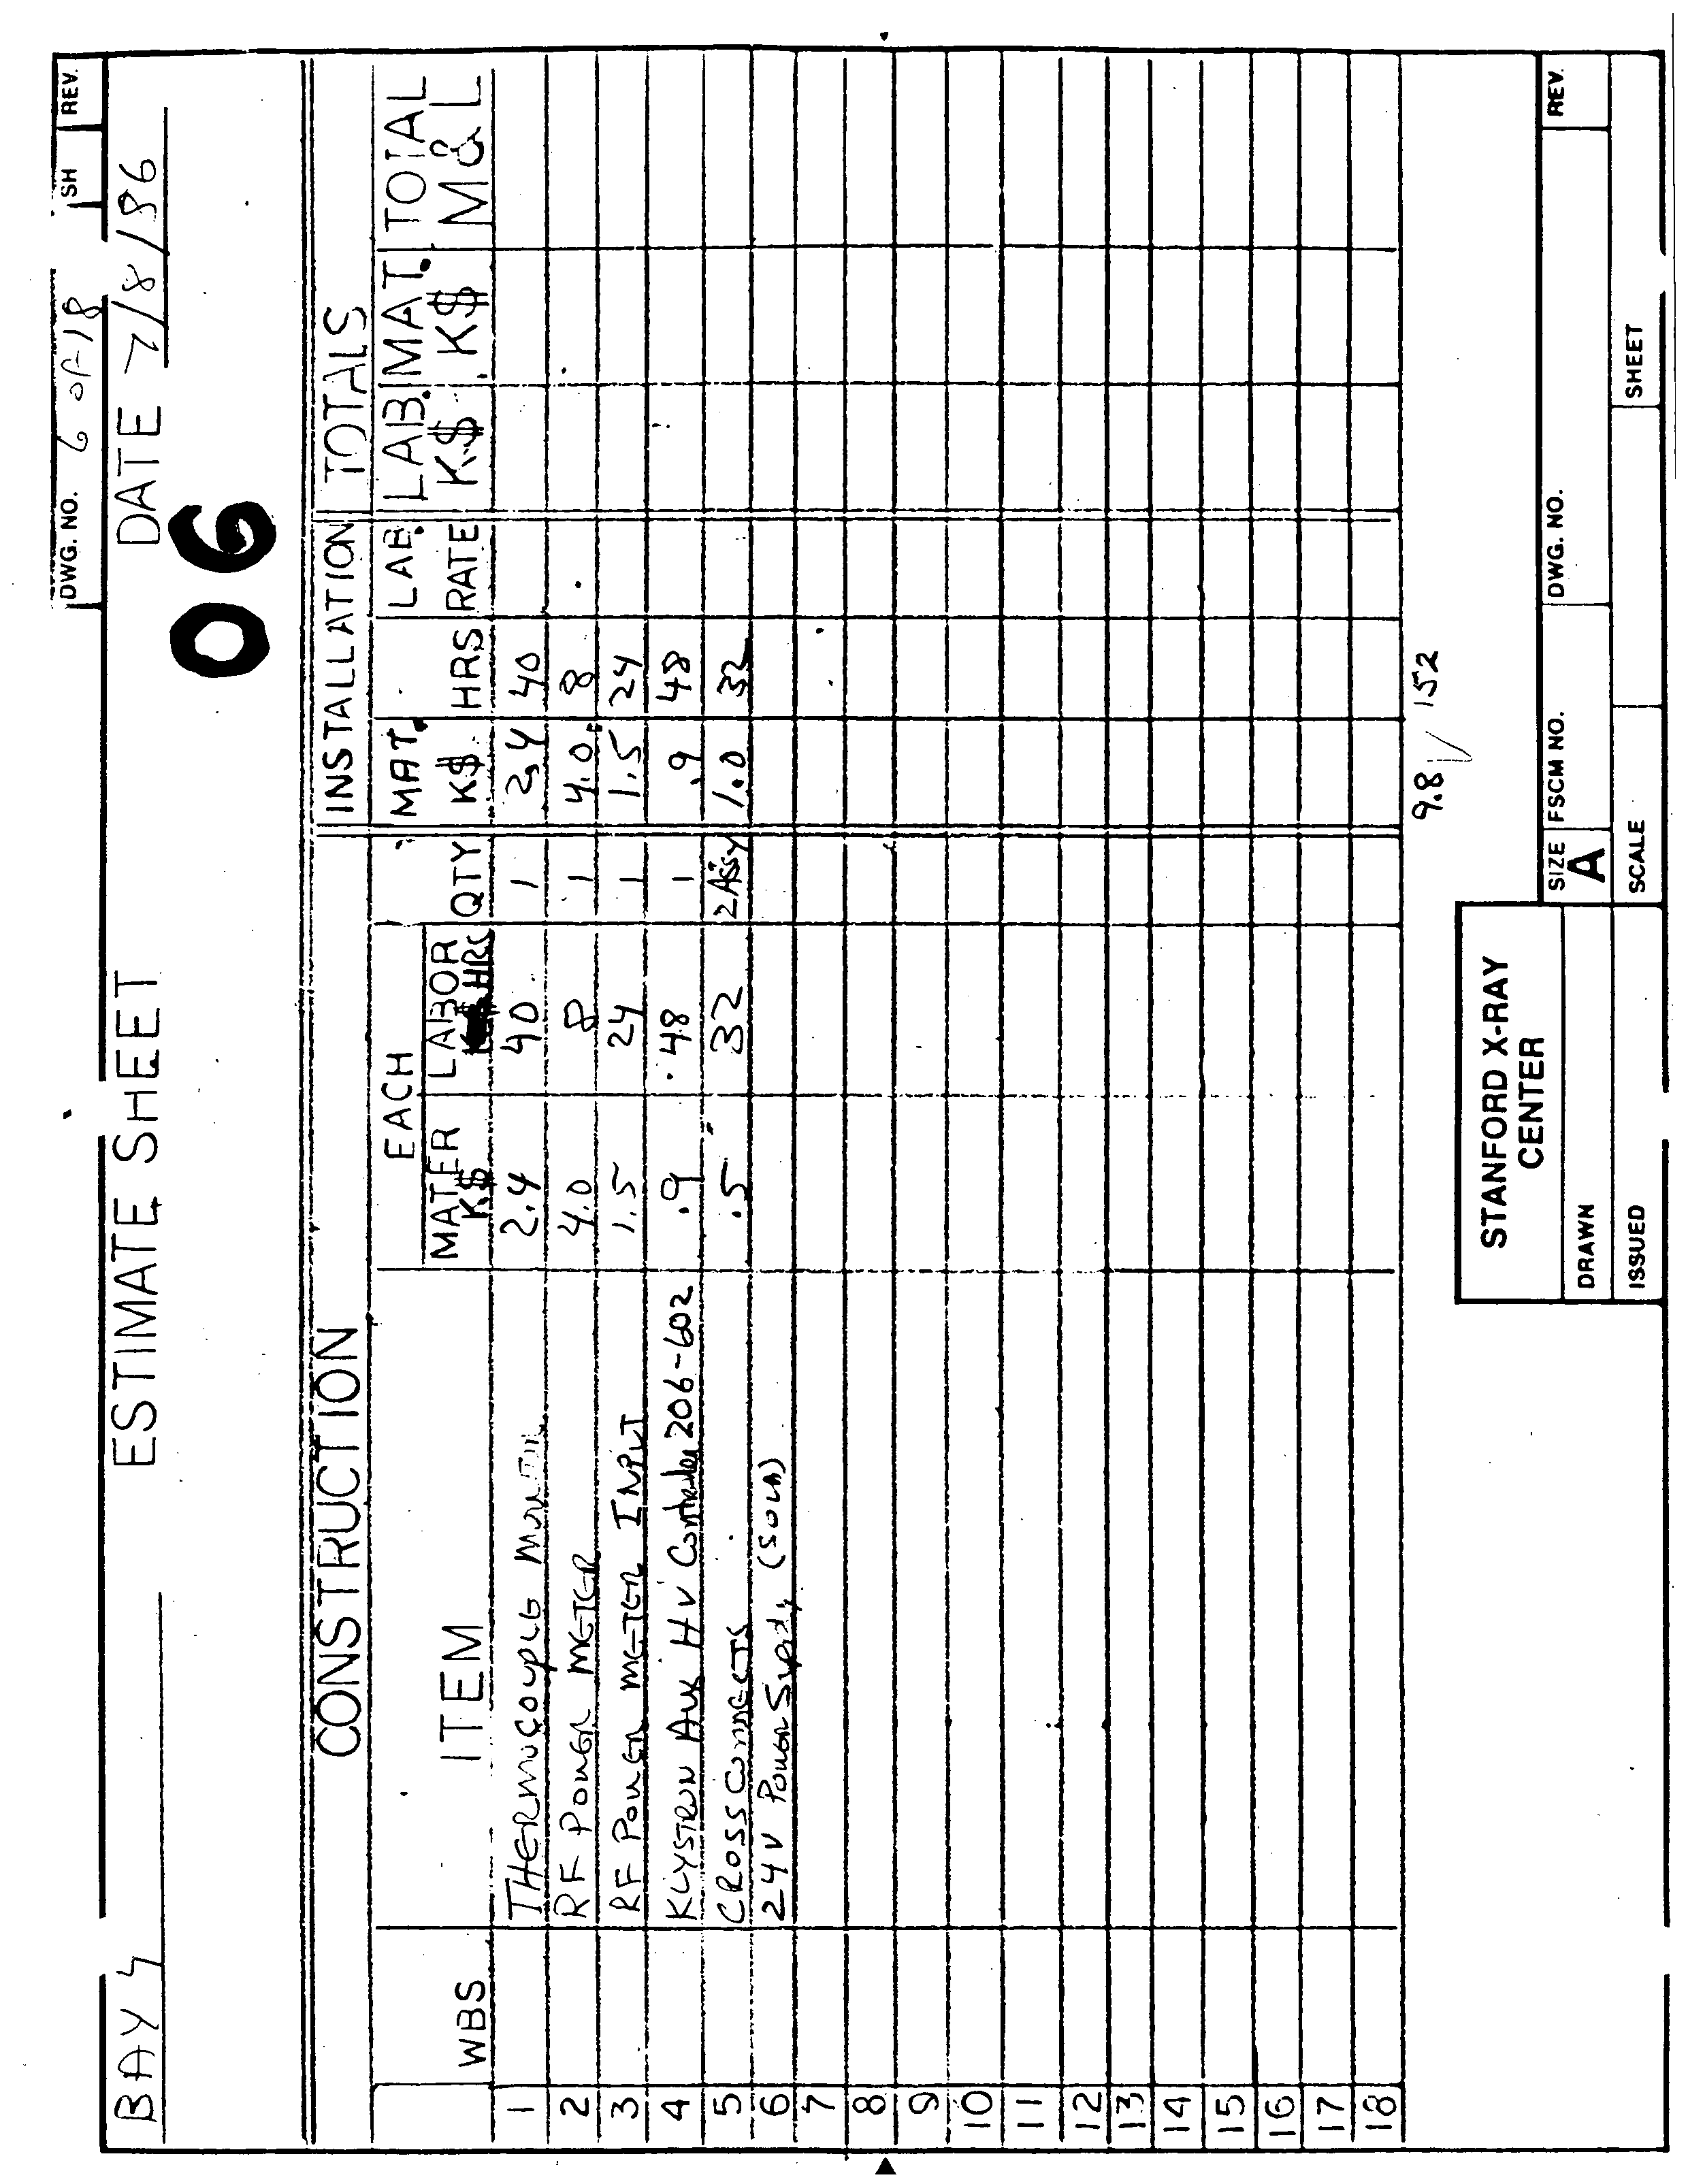 DWG. NO. 6 OF 18 SH REV.
BAY 4 ESTIMATE SHEET DATE 7/8/86
06
CONSTRUCTION INSTALLATION TOTALS
EACH MAT. LAB. LAB. MAT. TOTAL
WBS ITEM MATER K$ LABOR HRS QTY K$ HRS RATE K$ K$ M&L
1 THERMOCOUPLE MONITOR 2.4 40 1 2.4 40
2 RF POWER METER 4.0 8 1 4.0 8
3 RF POWER METER INPUT 1.5 24 1 1.5 24
4 KLYSTRON AUX HV Controller 206-602 .9 48 1 .9 48
5 CROSS CONNECTS .5 32 2 Assy 1.0 32
6 24 V POWER Supply (SOLA)
7
8
9
10
11
12
13
14
15
16
17
18
9.8 152
STANFORD X-RAY
CENTER
SIZE A FSCM NO. DWG. NO. REV.
DRAWN
ISSUED SCALE SHEET